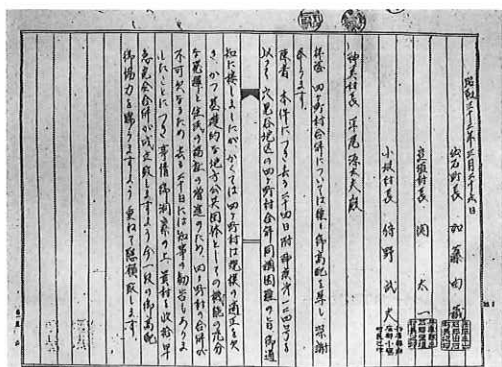 昭和三十二年三月二十六日
出石町長 加藤
室埴村長 関 太一
小坂村長 狩野 武夫
神美村長 平尾源太夫殿
拝啓 四ヶ町村合併については種々御高配を蒙り深謝
奉ります。
陳者 本件につき去る二十四日附神庶第一二四号を
以って穴見谷地区の四ヶ町村合併同調困難の旨御通
知に接しましたが、かくては四ヶ町村は規模の適正を欠
き、かつ基礎的な地方公共団体としての機能の充分
な発揮と住民の福祉の増進のため、四ヶ町村の合併が
不可欠なるため、去る二十日には知事の勧告もありま
したことにつき、事情御洞察の上、貴村を収拾早
急完全合併が成立致しますよう今一段の御高配
御協力を賜りますよう重ねて懇願致します。